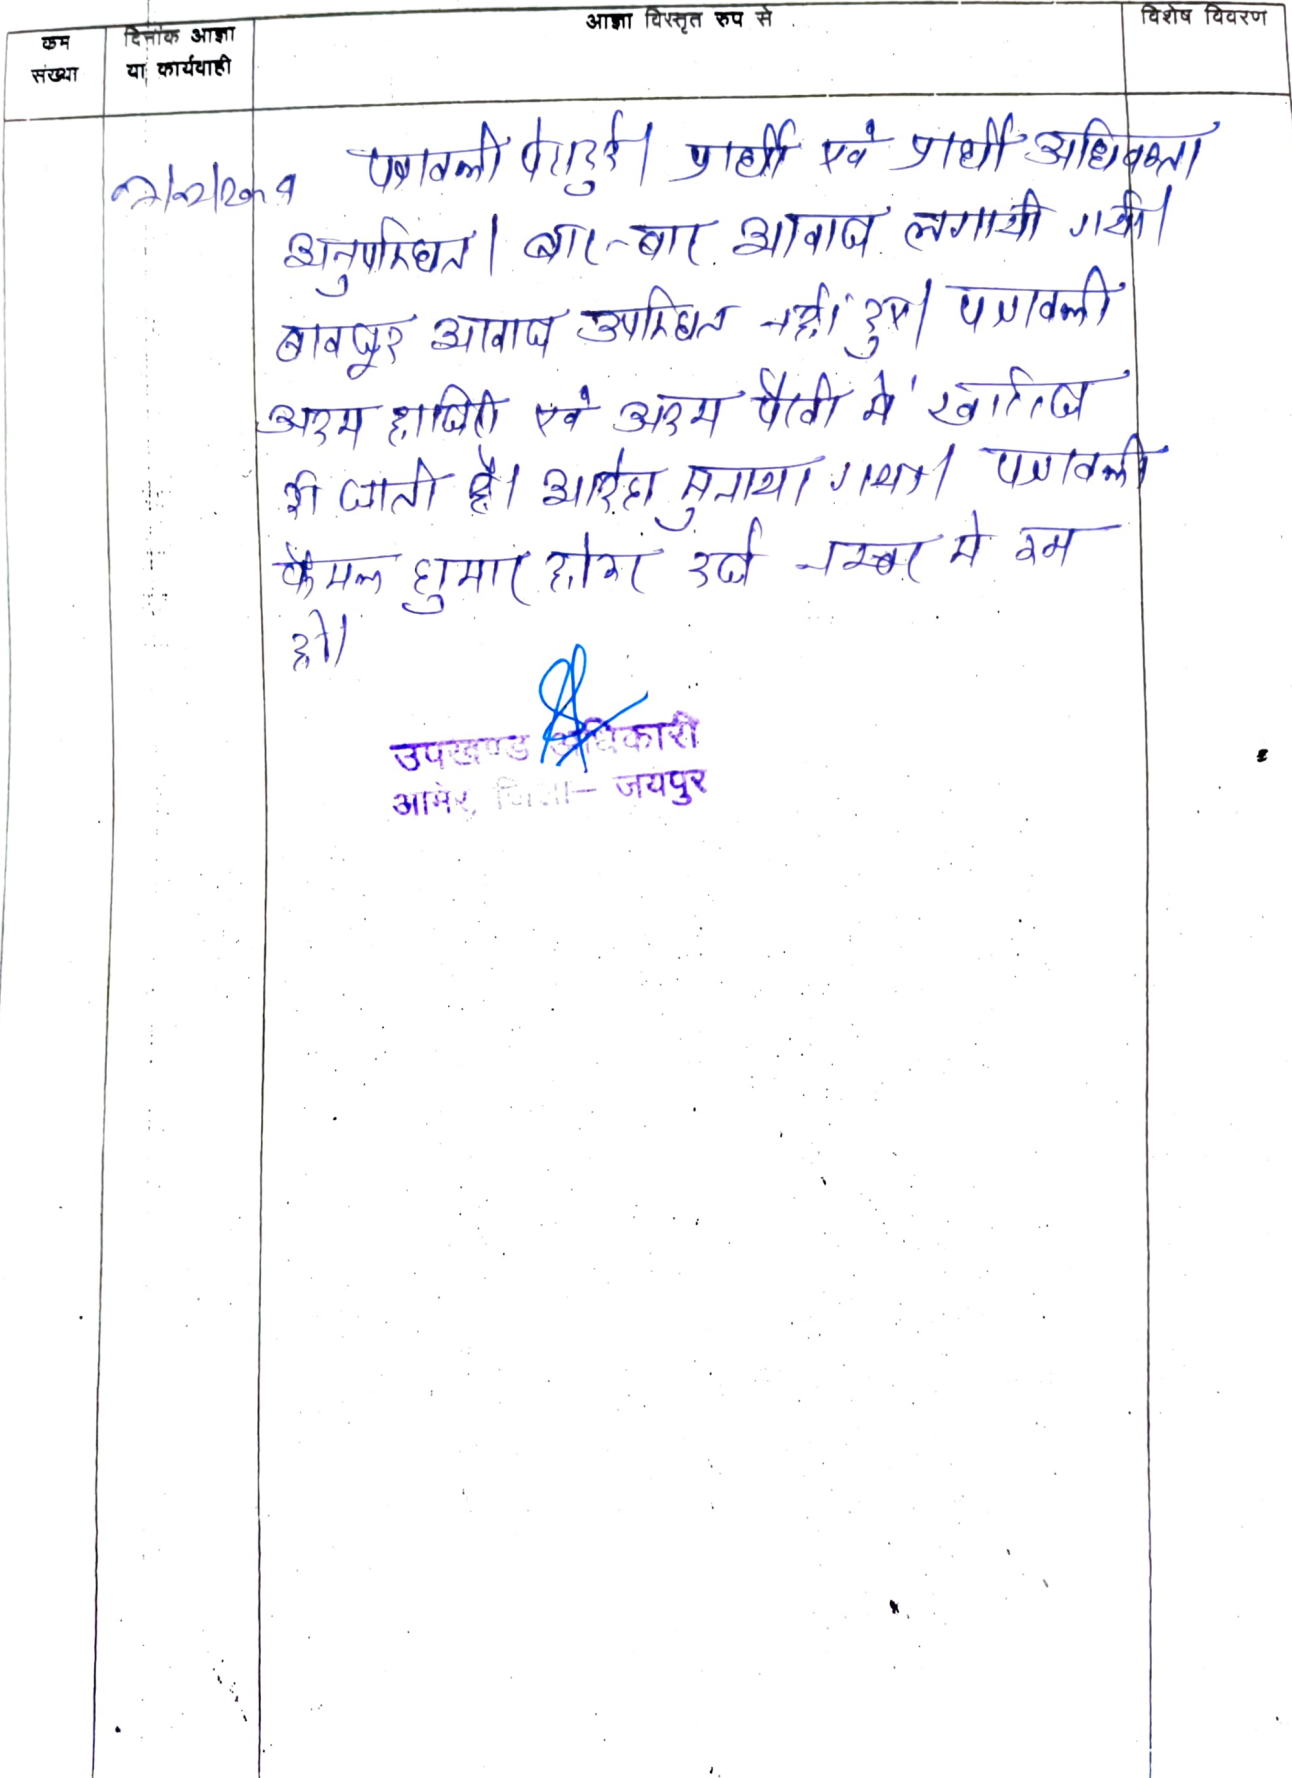 कम संख्या
दिनांक आज्ञा या कार्यवाही
आज्ञा विस्तृत रुप से
विशेष विवरण
पत्रावली पेश हुई। प्रार्थी एवं प्रार्थी अधिवक्ता
अनुपस्थित। बार-बार आवाज लगायी गयी।
बावजूद आवाज उपस्थित नहीं हुए। पत्रावली
अदम हाजिरी एवं अदम पैरवी में खारिज
की जाती है। आदेश सुनाया गया। पत्रावली
फैसल शुमार होकर दर्ज नम्बर से कम
हो।
उपखण्ड अधिकारी
आमेर, जिला- जयपुर